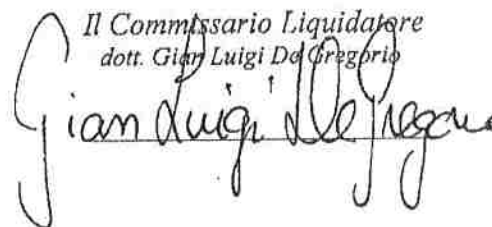 Il Commissario Liquidatore
dott. Gian Luigi De Gregorio
Gian Luigi De Gregorio